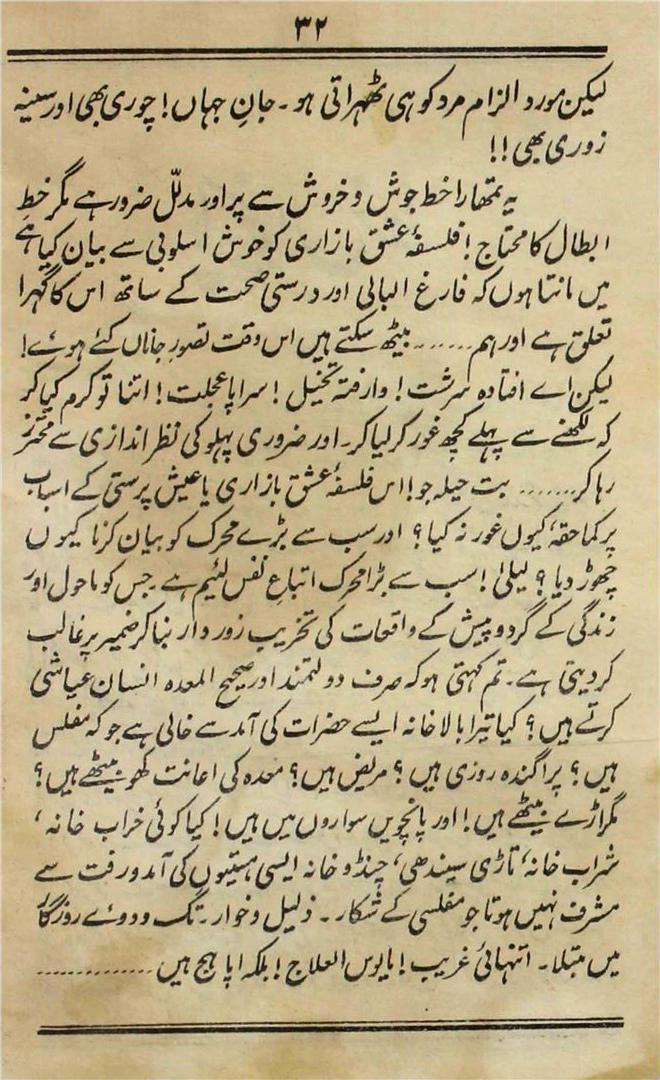 ۳۲
لیکن مورد الزام مرد کو ہی ٹھہراتی ہو۔ جانِ جہاں! چوری بھی اور سینہ
زوری بھی!!
یہ تمھارا خط جوش و خروش سے پر اور مدلّل ضرور ہے مگر خطِ
ابطال کا محتاج! فلسفۂ عشق بازاری کو خوش اسلوبی سے بیان کیا ہے
میں مانتا ہوں کہ فارغ البالی اور درستی صحت کے ساتھ اس کا گہرا
تعلق ہے اور ہم....... بیٹھ سکتے ہیں اس وقت تصورِ جاناں کئے ہوئے!
لیکن اے افتادہ سرشت! وارفتہ تخیل! سراپا عجلت! اتنا تو کرم کیا کر
کہ لکھنے سے پہلے کچھ غور کر لیا کر۔ اور ضروری پہلو کی نظر اندازی سے محترز
رہا کر....... بت حیلہ جو! اس فلسفۂ عشق بازاری یا عیش پرستی کے اسباب
پر کماحقہٗ کیوں غور نہ کیا؟ اور سب سے بڑے محرک کو بیان کرنا کیوں
چھوڑ دیا؟ لیلیٰ! سب سے بڑا محرک اتباعِ نفس لئیم ہے۔ جس کو ماحول اور
زندگی کے گرد و پیش کے واقعات کی تخریب زور دار بنا کر ضمیر پر غالب
کر دیتی ہے۔ تم کہتی ہو کہ صرف دولتمند اور صحیح المعدہ انسان عیاشی
کرتے ہیں؟ کیا تیرا بالا خانہ ایسے حضرات کی آمد سے خالی ہے جو کہ مفلس
ہیں؟ پراگندہ روزی ہیں؟ مریض ہیں؟ معدہ کی اعانت کھو بیٹھے ہیں؟
مگر اڑے بیٹھے ہیں! اور پانچویں سواروں میں ہیں! کیا کوئی خراب خانہ،
شراب خانہ، تاڑی سیندھی، چنڈو خانہ ایسی ہستیوں کی آمد و رفت سے
مشرف نہیں ہوتا جو مفلسی کے شکار۔۔ ذلیل و خوار۔ تگ و دوئے روزگار
میں مبتلا۔ انتہائی غریب! مایوس العلاج! بلکہ اپاہج ہیں..............